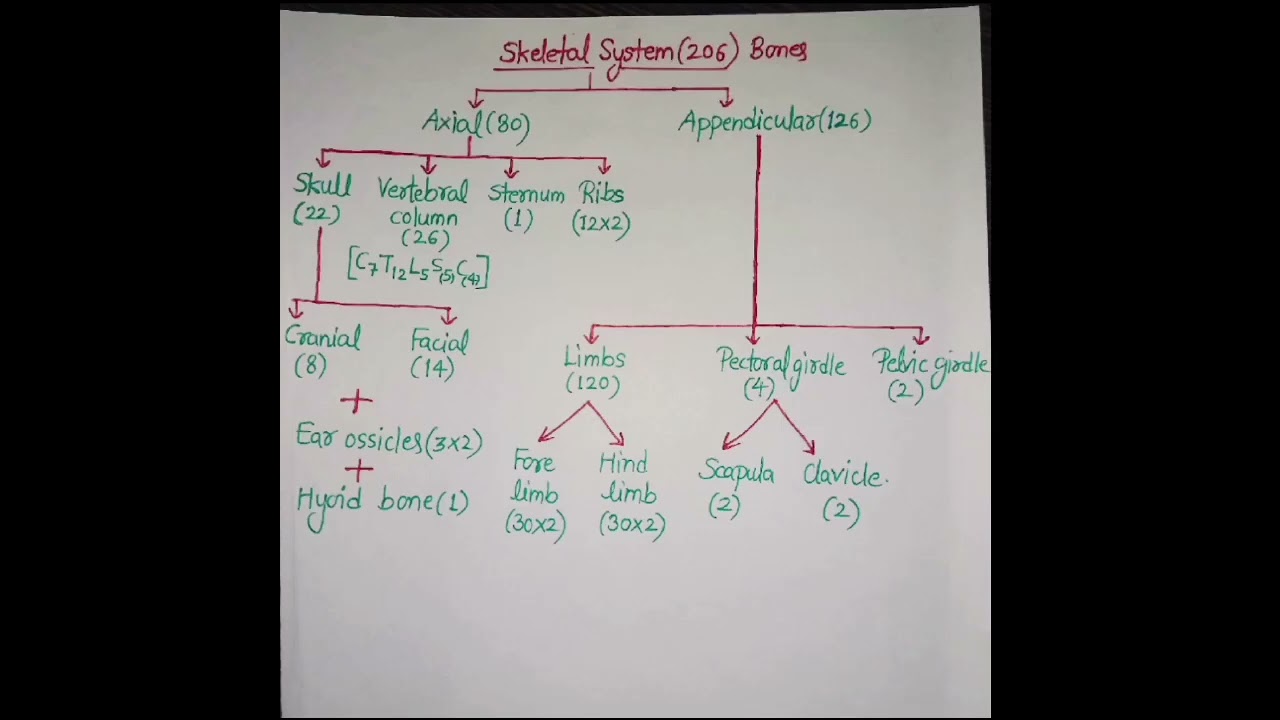 Skeletal System (206) Bones
Axial (80)
Appendicular (126)
Skull
(22)
Vertebral
column
(26)
[C7T12L5S(5)C(4)]
Sternum
(1)
Ribs
(12×2)
Cranial
(8)
Facial
(14)
+
Ear ossicles (3×2)
+
Hyoid bone (1)
Limbs
(120)
Pectoral girdle
(4)
Pelvic girdle
(2)
Fore
limb
(30×2)
Hind
limb
(30×2)
Scapula
(2)
Clavicle.
(2)